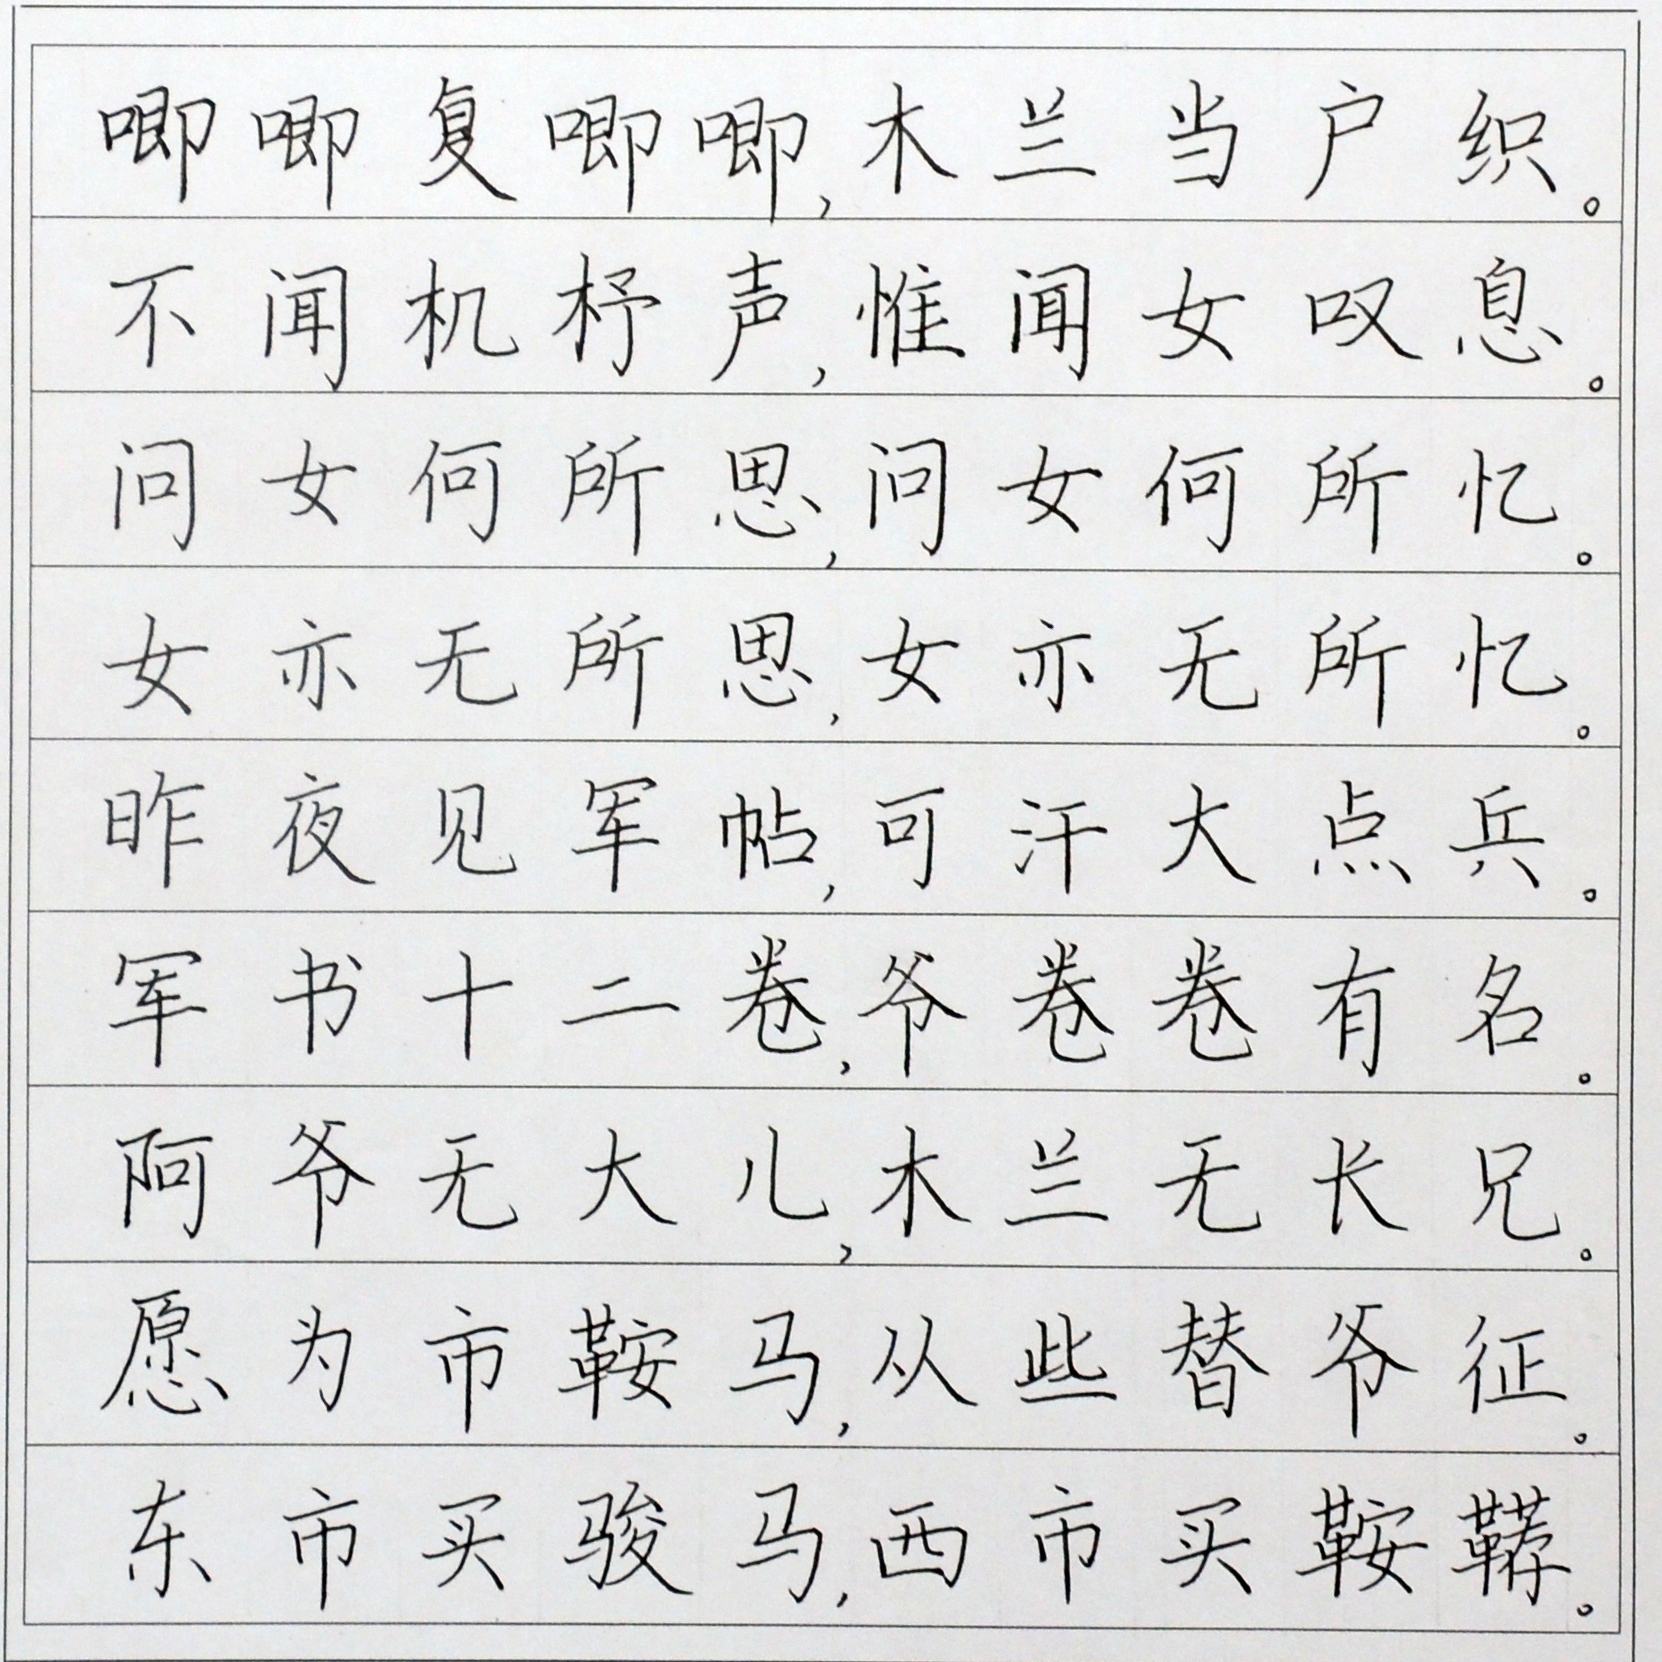 唧唧复唧唧,木兰当户织。
不闻机杼声,惟闻女叹息。
问女何所思,问女何所忆。
女亦无所思,女亦无所忆。
昨夜见军帖,可汗大点兵。
军书十二卷,爷卷卷有名。
阿爷无大儿,木兰无长兄。
愿为市鞍马,从些替爷征。
东市买骏马,西市买鞍鞯。